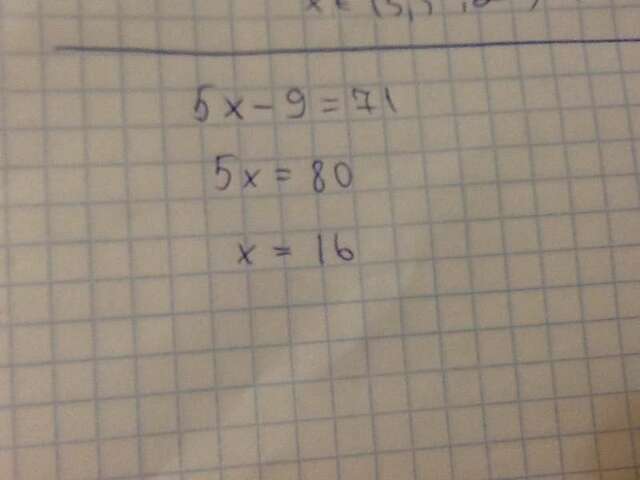 5x - 9 = 71
5x = 80
x = 16